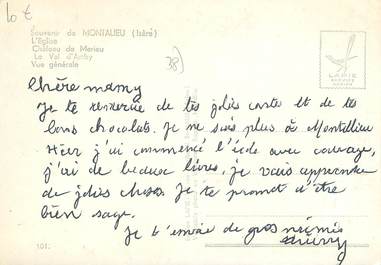 10 €
Souvenir de MONTALIEU (Isère)
L'Eglise
Château de Merieu
Le Val d'Amby
Vue générale
38)
LAPIE
Chère mamy
Je te remercie de tes jolies carte et de tes
bons chocolats. Je ne suis plus à Montallieu
Hier j'ai commencé l'école avec courage,
j'ai de beaux livres, je vais apprendre
de jolies choses. Je te promet d'être
bien sage.
Je t'envoie de gros
thierry
101.